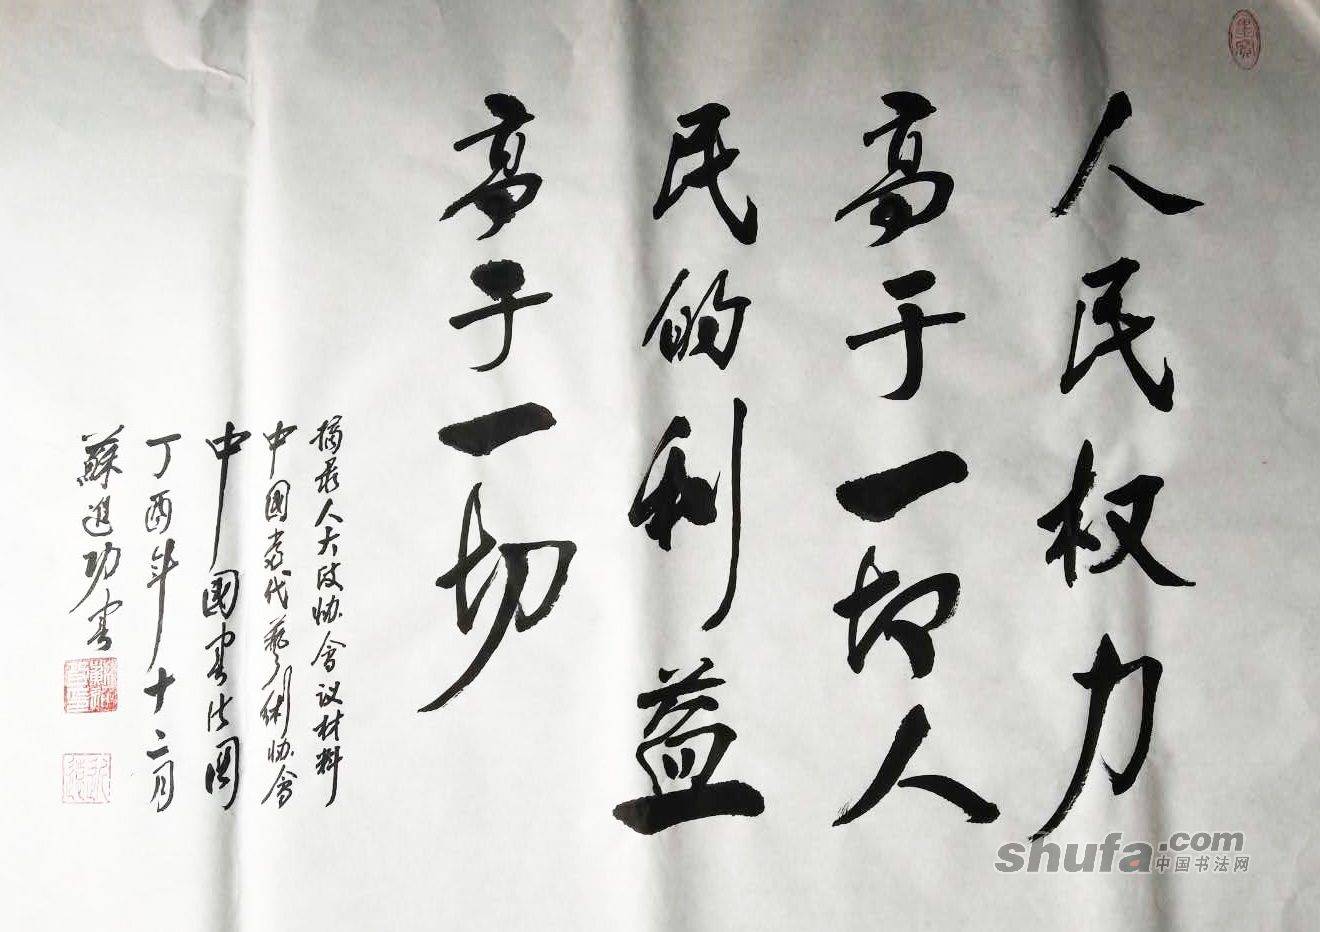 人民权力
高于一切人
民的利益
高于一切
摘最人大政协会议材料
中國当代藝術协會
中國書法國
丁酉年十二月
蘇進功書
shufa.com
中国书法网